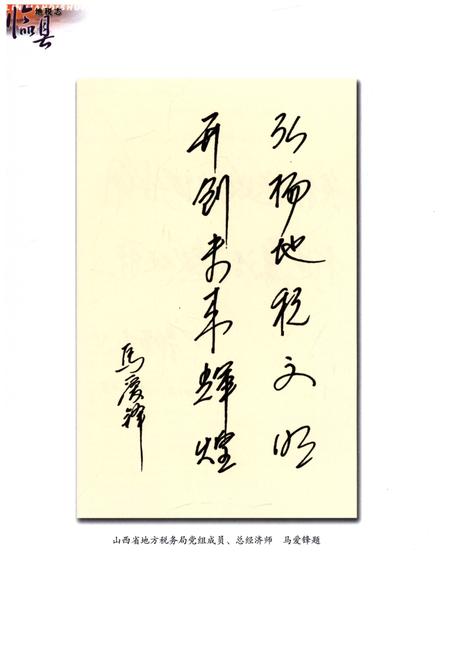 临县
地税志
弘扬地税文明
开创未来辉煌
马爱锋
山西省地方税务局党组成员、总经济师 马爱锋题